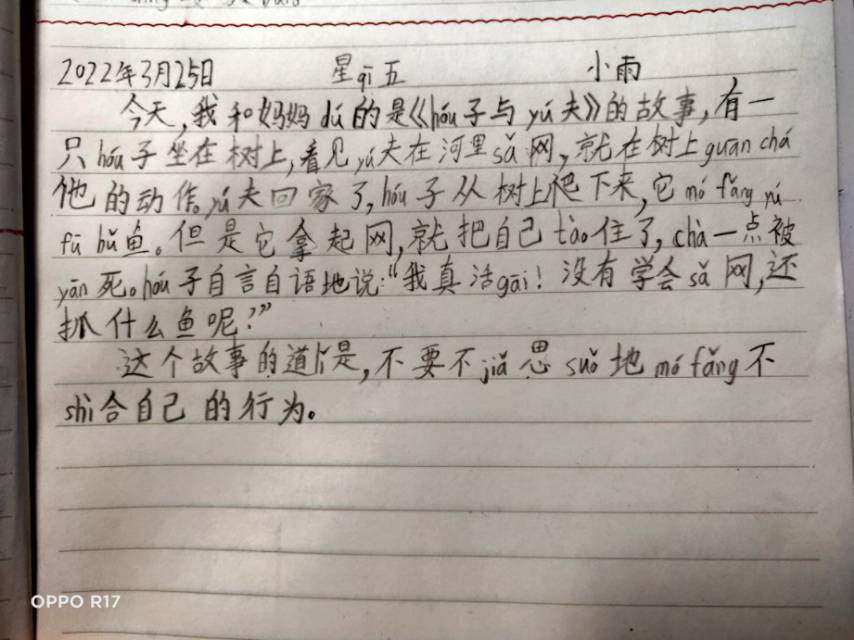 2022年3月25日 星qī五 小雨
今天,我和妈妈dú的是《hóu子与yú夫》的故事,有一
只hóu子坐在树上,看见yú夫在河里sǎ网,就在树上guān chá
他的动作。yú夫回家了,hóu子从树上爬下来,它mó fǎng yú
fū bǔ鱼。但是它拿起网,就把自己tào住了,chà一点被
yān死。hóu子自言自语地说:“我真活gāi!没有学会sǎ网,还
抓什么鱼呢?”
这个故事的道lǐ是,不要不jiǎ思suǒ地mó fǎng不
shì合自己的行为。
OPPO R17